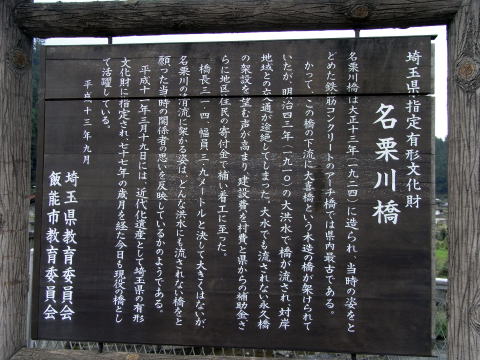 埼玉県指定有形文化財
名栗川橋
名栗川橋は大正十三年(一九二四)に造られ、当時の姿をと
どめた鉄筋コンクリートのアーチ橋では県内最古である。
かつて、この橋の下流に大喜橋という木造の橋が架けられて
いたが、明治四三年(一九一〇)の大洪水で橋が流され、対岸
地域との交通が途絶してしまった。大水でも流されない永久橋
の架設を望む声が高まり、建設費を村費と県からの補助金、さ
らに地区住民の寄付金で補い着工に至った。
橋長三一・四、幅員三・九メートルと決して大きくはないが、
名栗川の清流に架かる姿は、どんな洪水にも流されない橋をと
願った当時の関係者の思いを反映しているかのようである。
平成十一年三月十九日には、近代化遺産として埼玉県の有形
文化財に指定され、七十七年の歳月を経た今日も現役の橋とし
て活躍している。
平成十三年九月
埼玉県教育委員会
飯能市教育委員会